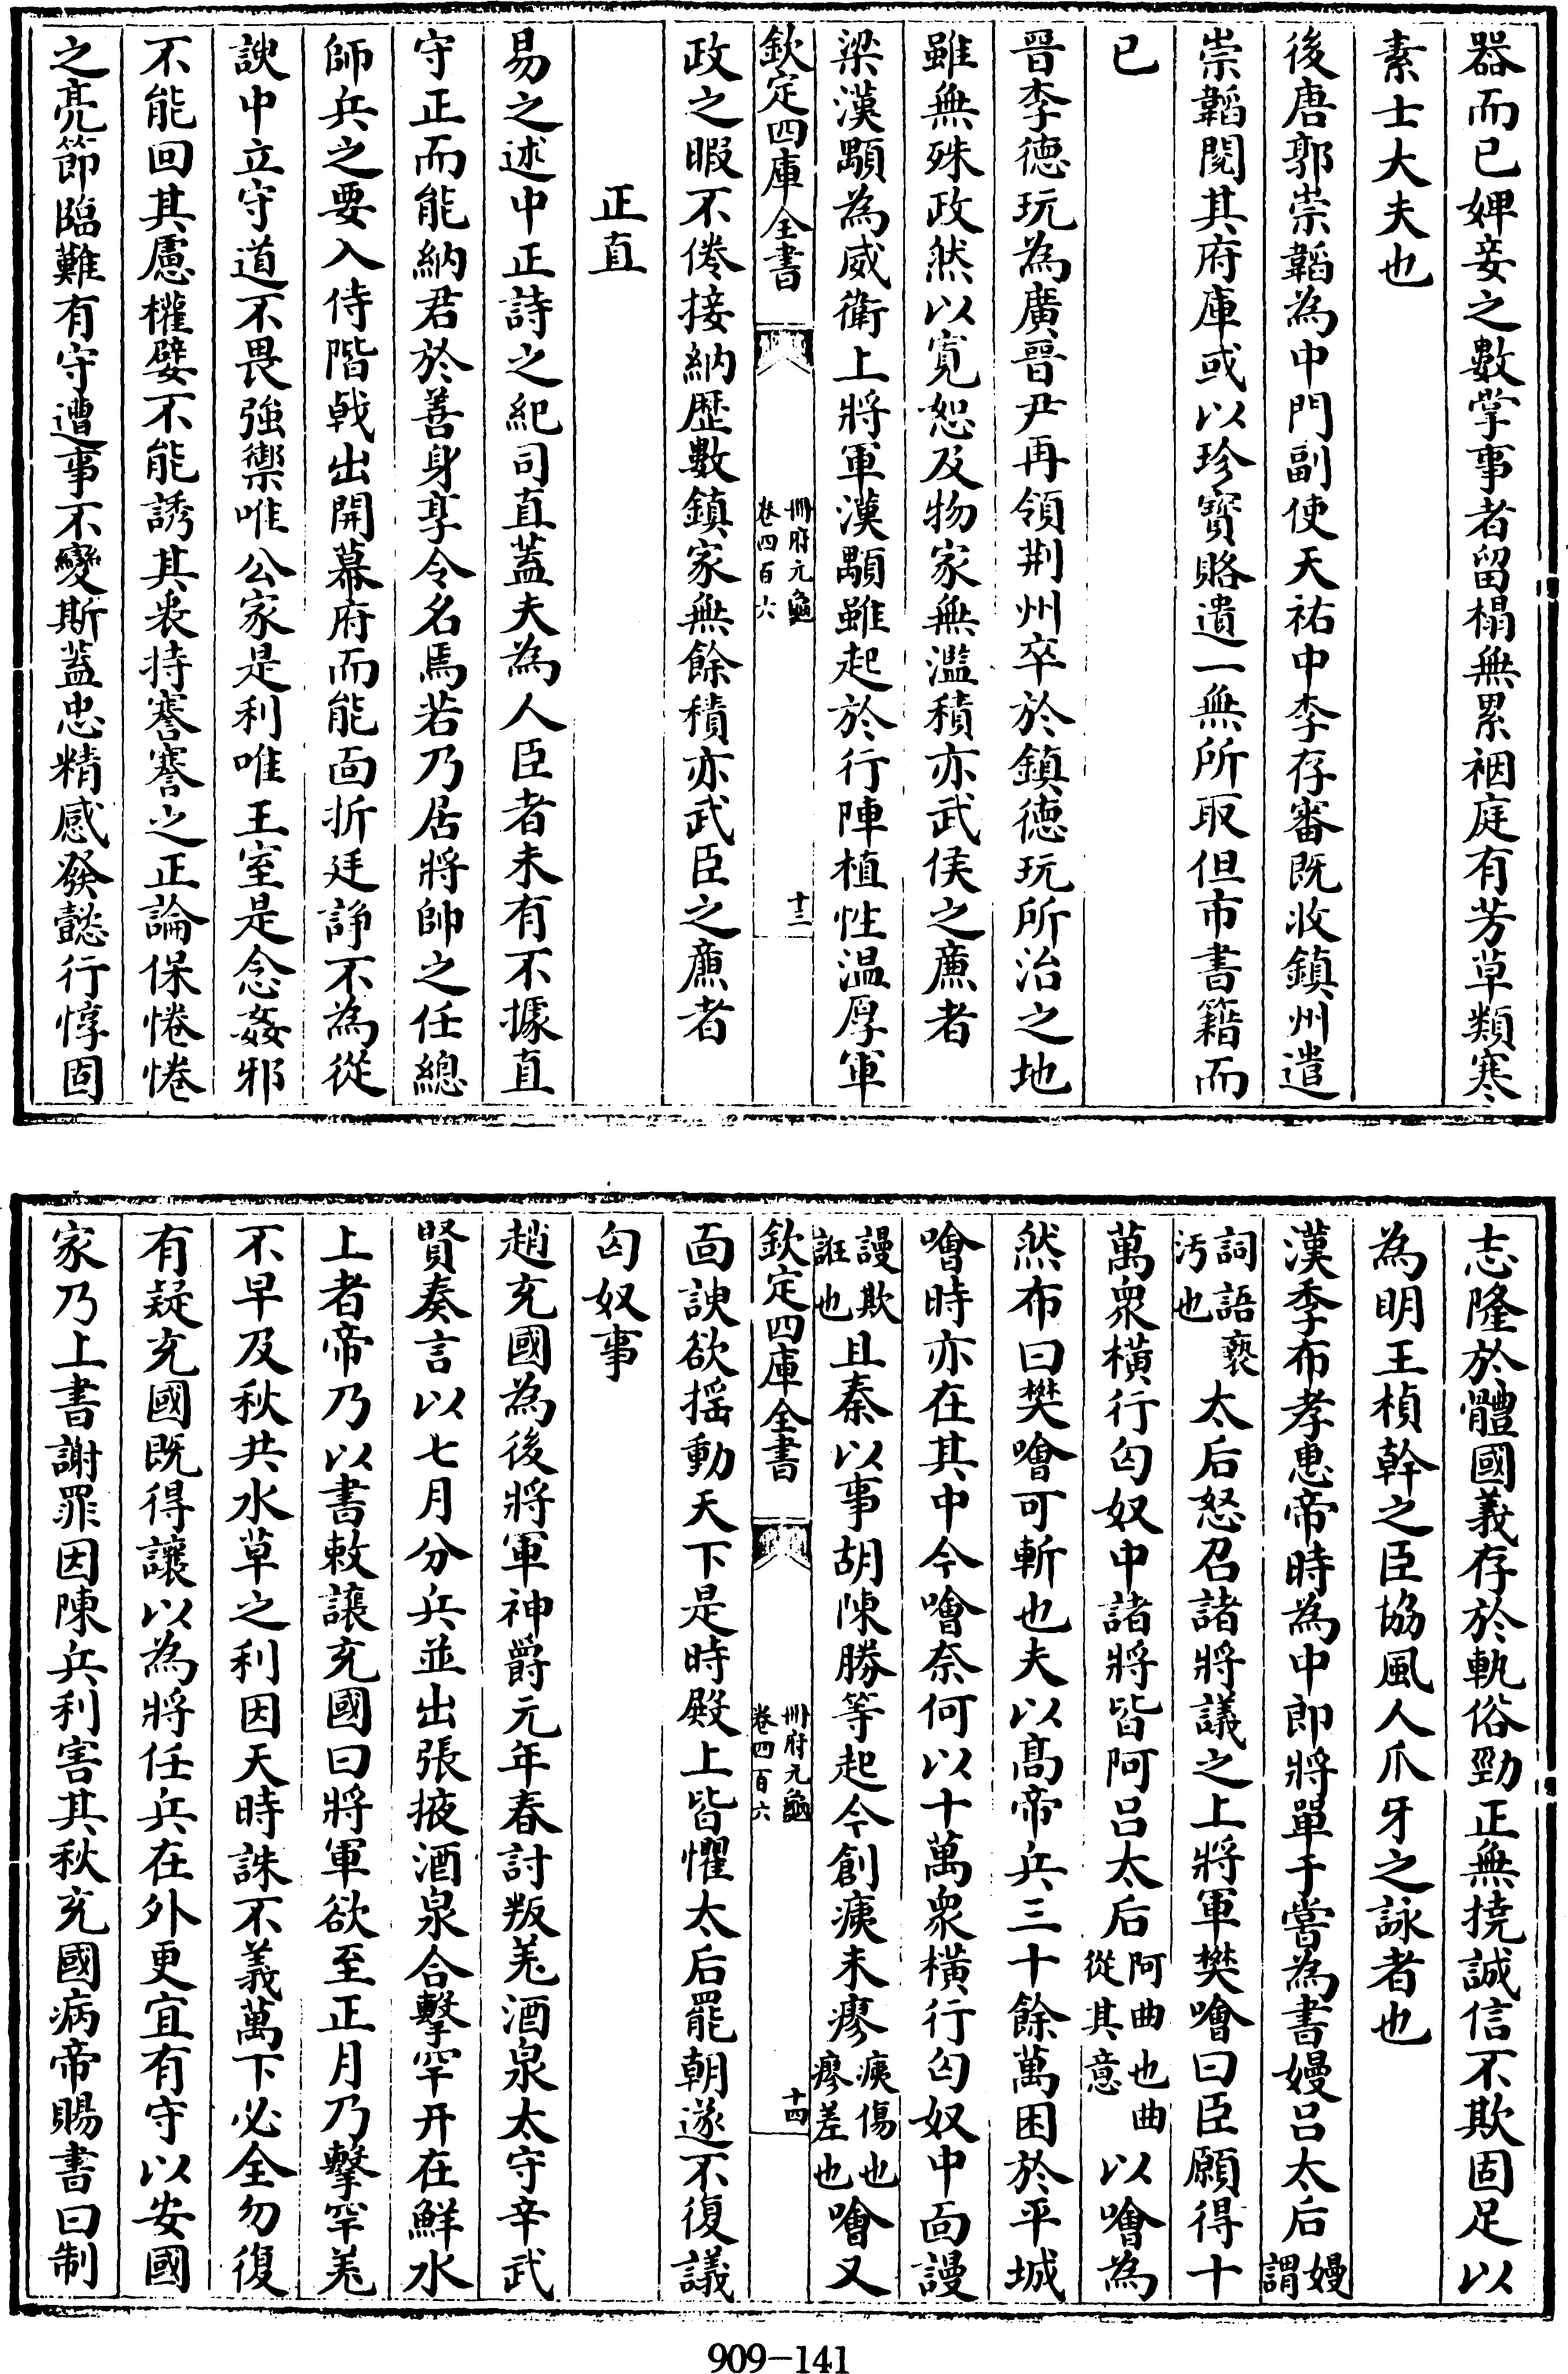 器而已婢妾之數掌事者留榻無累裀庭有芳草類寒
素士大夫也
後唐郭崇韜為中門副使天祐中李存審既收鎮州遣
崇韜閱其府庫或以珍寳賂遺一無所取但市書籍而
已
晉李德玩為廣晉尹再領荆州卒於鎮德玩所治之地
雖無殊政然以寛恕及物家無濫積亦武侯之廉者
梁漢顒為威衛上將軍漢顒雖起於行陣植性温厚軍
欽定四庫全書
冊府元龜
卷四百六
十三
政之暇不倦接納歴數鎮家無餘積亦武臣之廉者
正直
易之述中正詩之紀司直蓋夫為人臣者未有不據直
守正而能納君於善身享令名焉若乃居將帥之任總
師兵之要入侍階戟出開幕府而能面折廷諍不為從
諛中立守道不畏強禦唯公家是利唯王室是念姦邪
不能回其慮權嬖不能誘其衷持謇謇之正論保惓惓
之亮節臨難有守遭事不變斯蓋忠精感發懿行惇固
志隆於體國義存於軌俗勁正無撓誠信不欺固足以
為明王楨幹之臣協風人爪牙之詠者也
漢季布孝惠帝時為中郎將單于嘗為書嫚吕太后嫚謂
詞語䙝汚也太后怒召諸將議之上將軍樊噲曰臣願得十
萬衆横行匈奴中諸將皆阿吕太后阿曲也曲從其意以噲為
然布曰樊噲可斬也夫以髙帝兵三十餘萬困於平城
噲時亦在其中今噲奈何以十萬衆横行匈奴中面謾
謾欺誑也且秦以事胡陳勝等起今創痍未瘳痍傷也瘳差也噲又
欽定四庫全書
冊府元龜
卷四百六
十四
面諛欲揺動天下是時殿上皆懼太后罷朝遂不復議
匈奴事
趙充國為後將軍神爵元年春討叛羌酒泉太守辛武
賢奏言以七月分兵並出張掖酒泉合擊罕幵在鮮水
上者帝乃以書敕讓充國曰將軍欲至正月乃擊罕羌
不早及秋共水草之利因天時誅不義萬下必全勿復
有疑充國既得讓以為將任兵在外更宜有守以安國
家乃上書謝罪因陳兵利害其秋充國病帝賜書曰制
909-141